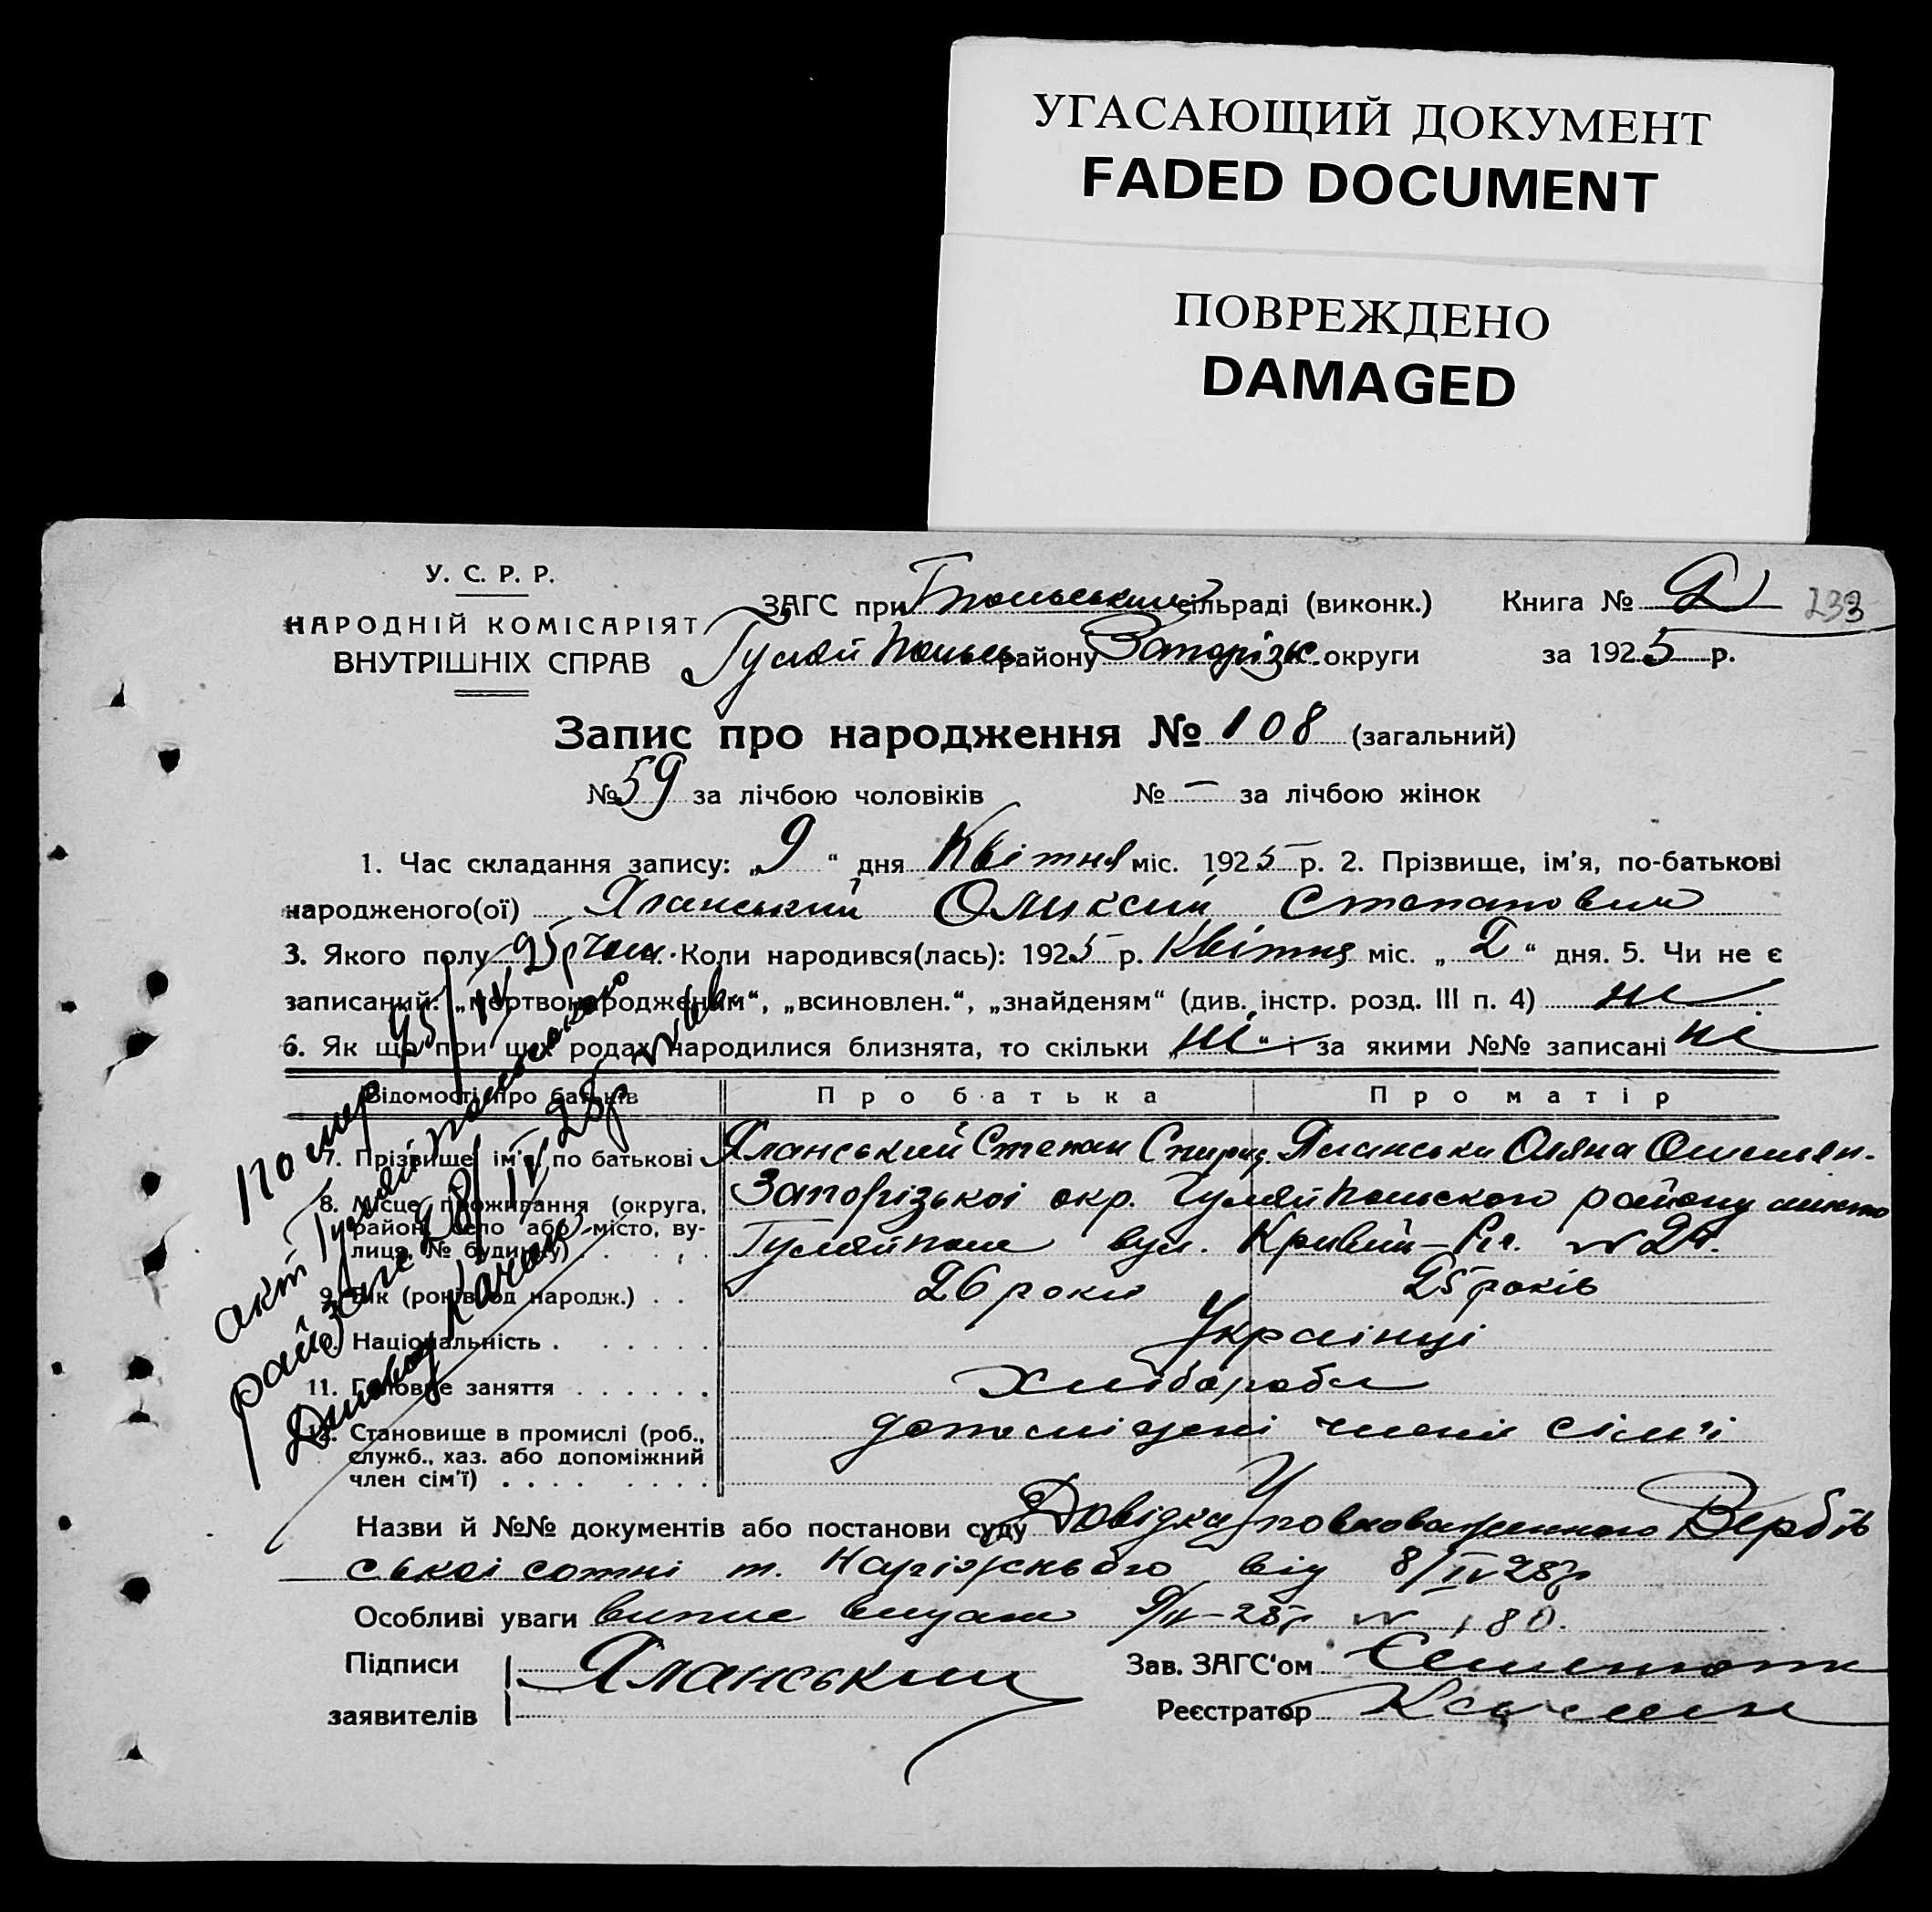 УГАСАЮЩИЙ ДОКУМЕНТ
FADED DOCUMENT
ПОВРЕЖДЕНО
DAMAGED
У. С. Р. Р.
НАРОДНІЙ КОМІСАРІЯТ
ВНУТРІШНІХ СПРАВ
ЗАГС при сільраді (виконк.)
Гуляй району Запорізьк. округи
Книга № 2 233
за 1925 р.
Запис про народження № 108 (загальний)
№ 59 за лічбою чоловіків № – за лічбою жінок
1. Час складання запису: „9“ дня Квітня міс. 1925 р. 2. Прізвище, ім’я, по-батькові
народженого(ої) Яланський Олексій Степанович
3. Якого полу чол. 4. Коли народився(лась): 1925 р. Квітня міс. „2“ дня. 5. Чи не є
записаний: „мертвонародженим“, „всиновлен.“, „знайденям“ (див. інстр. розд. III п. 4) ні
6. Як що при цих родах народилися близнята, то скільки „ні“ і за якими №№ записані ні
Відомості про батьків Про батька Про матір
7. Прізвище, ім’я, по батькові Яланський Степан Спирид. Яланська Оляна Омельян.
8. Місце проживання (округа, район, село або місто, вулиця, № будинку) Запорізької окр. Гуляйпольского району місто
Гуляйполе вул. Кривий-Ріг. № 24.
9. Вік (років од народж.) 26 роки 25 років
10. Національність Українці
11. Головне заняття Хлібороби
12. Становище в промислі (роб., служб., хаз. або допоміжний член сім’ї) члени сім’ї
Назви й №№ документів або постанови суду Довідка Уповноваженного Вербів
ської сотні т. Наріжнього від 8/IV 25р
Особливі уваги випис видано 9/IV-25р № 180.
Підписи Яланський Зав. ЗАГС‘ом
заявителів Реєстратор
помер
акт
райзагс 28/IV 25р